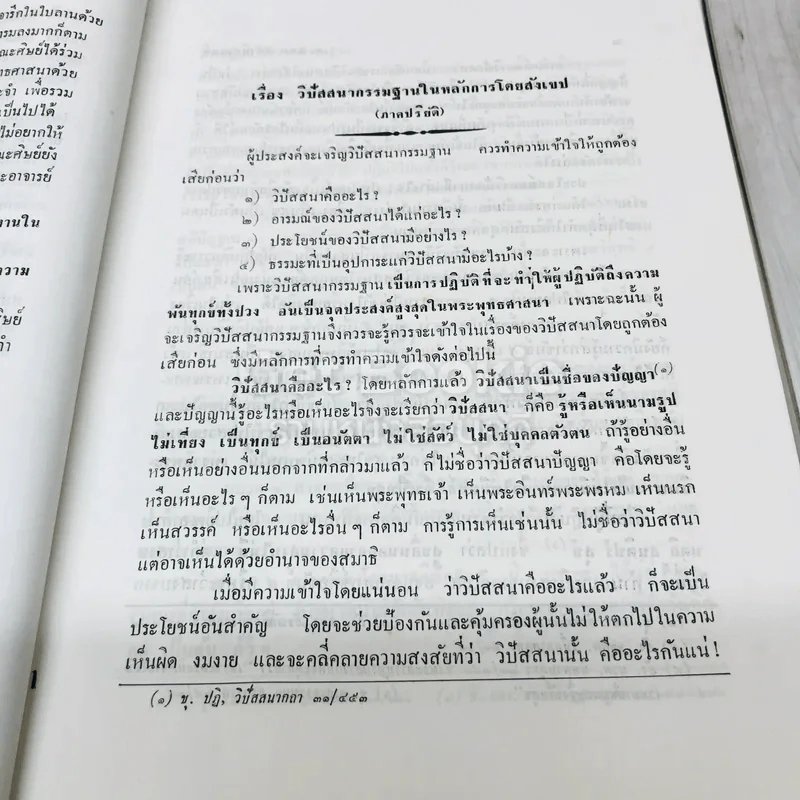 จารึกในใบลานด้วย
ารมลงมากก็ตาม
ณะศิษย์ได้ร่วม
ทธศาสนาด้วย
ะจำ เพื่อรวม
เป็นไปได้
ไม่อยากให้
ณะศิษย์ยัง
ะอาจารย์
งานใน
ความ
ศิษย์
ทำ
เรื่อง วิปัสสนากรรมฐานในหลักการโดยสังเขป
(ภาคปริยัติ)
ผู้ประสงค์จะเจริญวิปัสสนากรรมฐาน ควรทำความเข้าใจให้ถูกต้อง
เสียก่อนว่า
๑) วิปัสสนาคืออะไร ?
๒) อารมณ์ของวิปัสสนาได้แก่อะไร ?
๓) ประโยชน์ของวิปัสสนามีอย่างไร ?
๔) ธรรมะที่เป็นอุปการะแก่วิปัสสนามีอะไรบ้าง ?
เพราะวิปัสสนากรรมฐาน เป็นการปฏิบัติที่จะทำให้ผู้ปฏิบัติถึงความ
พ้นทุกข์ทั้งปวง อันเป็นจุดประสงค์สูงสุดในพระพุทธศาสนา เพราะฉะนั้น ผู้
จะเจริญวิปัสสนากรรมฐานจึงควรจะรู้ควรจะเข้าใจในเรื่องของวิปัสสนาโดยถูกต้อง
เสียก่อน ซึ่งมีหลักการที่ควรทำความเข้าใจดังต่อไปนี้
วิปัสสนาคืออะไร ? โดยหลักการแล้ว วิปัสสนาเป็นชื่อของปัญญา(๑)
และปัญญานี้รู้อะไรหรือเห็นอะไรจึงจะเรียกว่า วิปัสสนา ก็คือ รู้หรือเห็นนามรูป
ไม่เที่ยง เป็นทุกข์ เป็นอนัตตา ไม่ใช่สัตว์ ไม่ใช่บุคคลตัวตน ถ้ารู้อย่างอื่น
หรือเห็นอย่างอื่นนอกจากที่กล่าวมาแล้ว ก็ไม่ชื่อว่าวิปัสสนาปัญญา คือโดยจะรู้
หรือเห็นอะไร ๆ ก็ตาม เช่นเห็นพระพุทธเจ้า เห็นพระอินทร์พระพรหม เห็นนรก
เห็นสวรรค์ หรือเห็นอะไรอื่น ๆ ก็ตาม การรู้การเห็นเช่นนั้น ไม่ชื่อว่าวิปัสสนา
แต่อาจเห็นได้ด้วยอำนาจของสมาธิ
เมื่อมีความเข้าใจโดยแน่นอน ว่าวิปัสสนาคืออะไรแล้ว ก็จะเป็น
ประโยชน์อันสำคัญ โดยจะช่วยป้องกันและคุ้มครองผู้นั้นไม่ให้ตกไปในความ
เห็นผิด งมงาย และจะคลี่คลายความสงสัยที่ว่า วิปัสสนานั้น คืออะไรกันแน่ !
(๑) ขุ. ปฏิ, วิปัสสนากถา ๓๑/๔๕๓